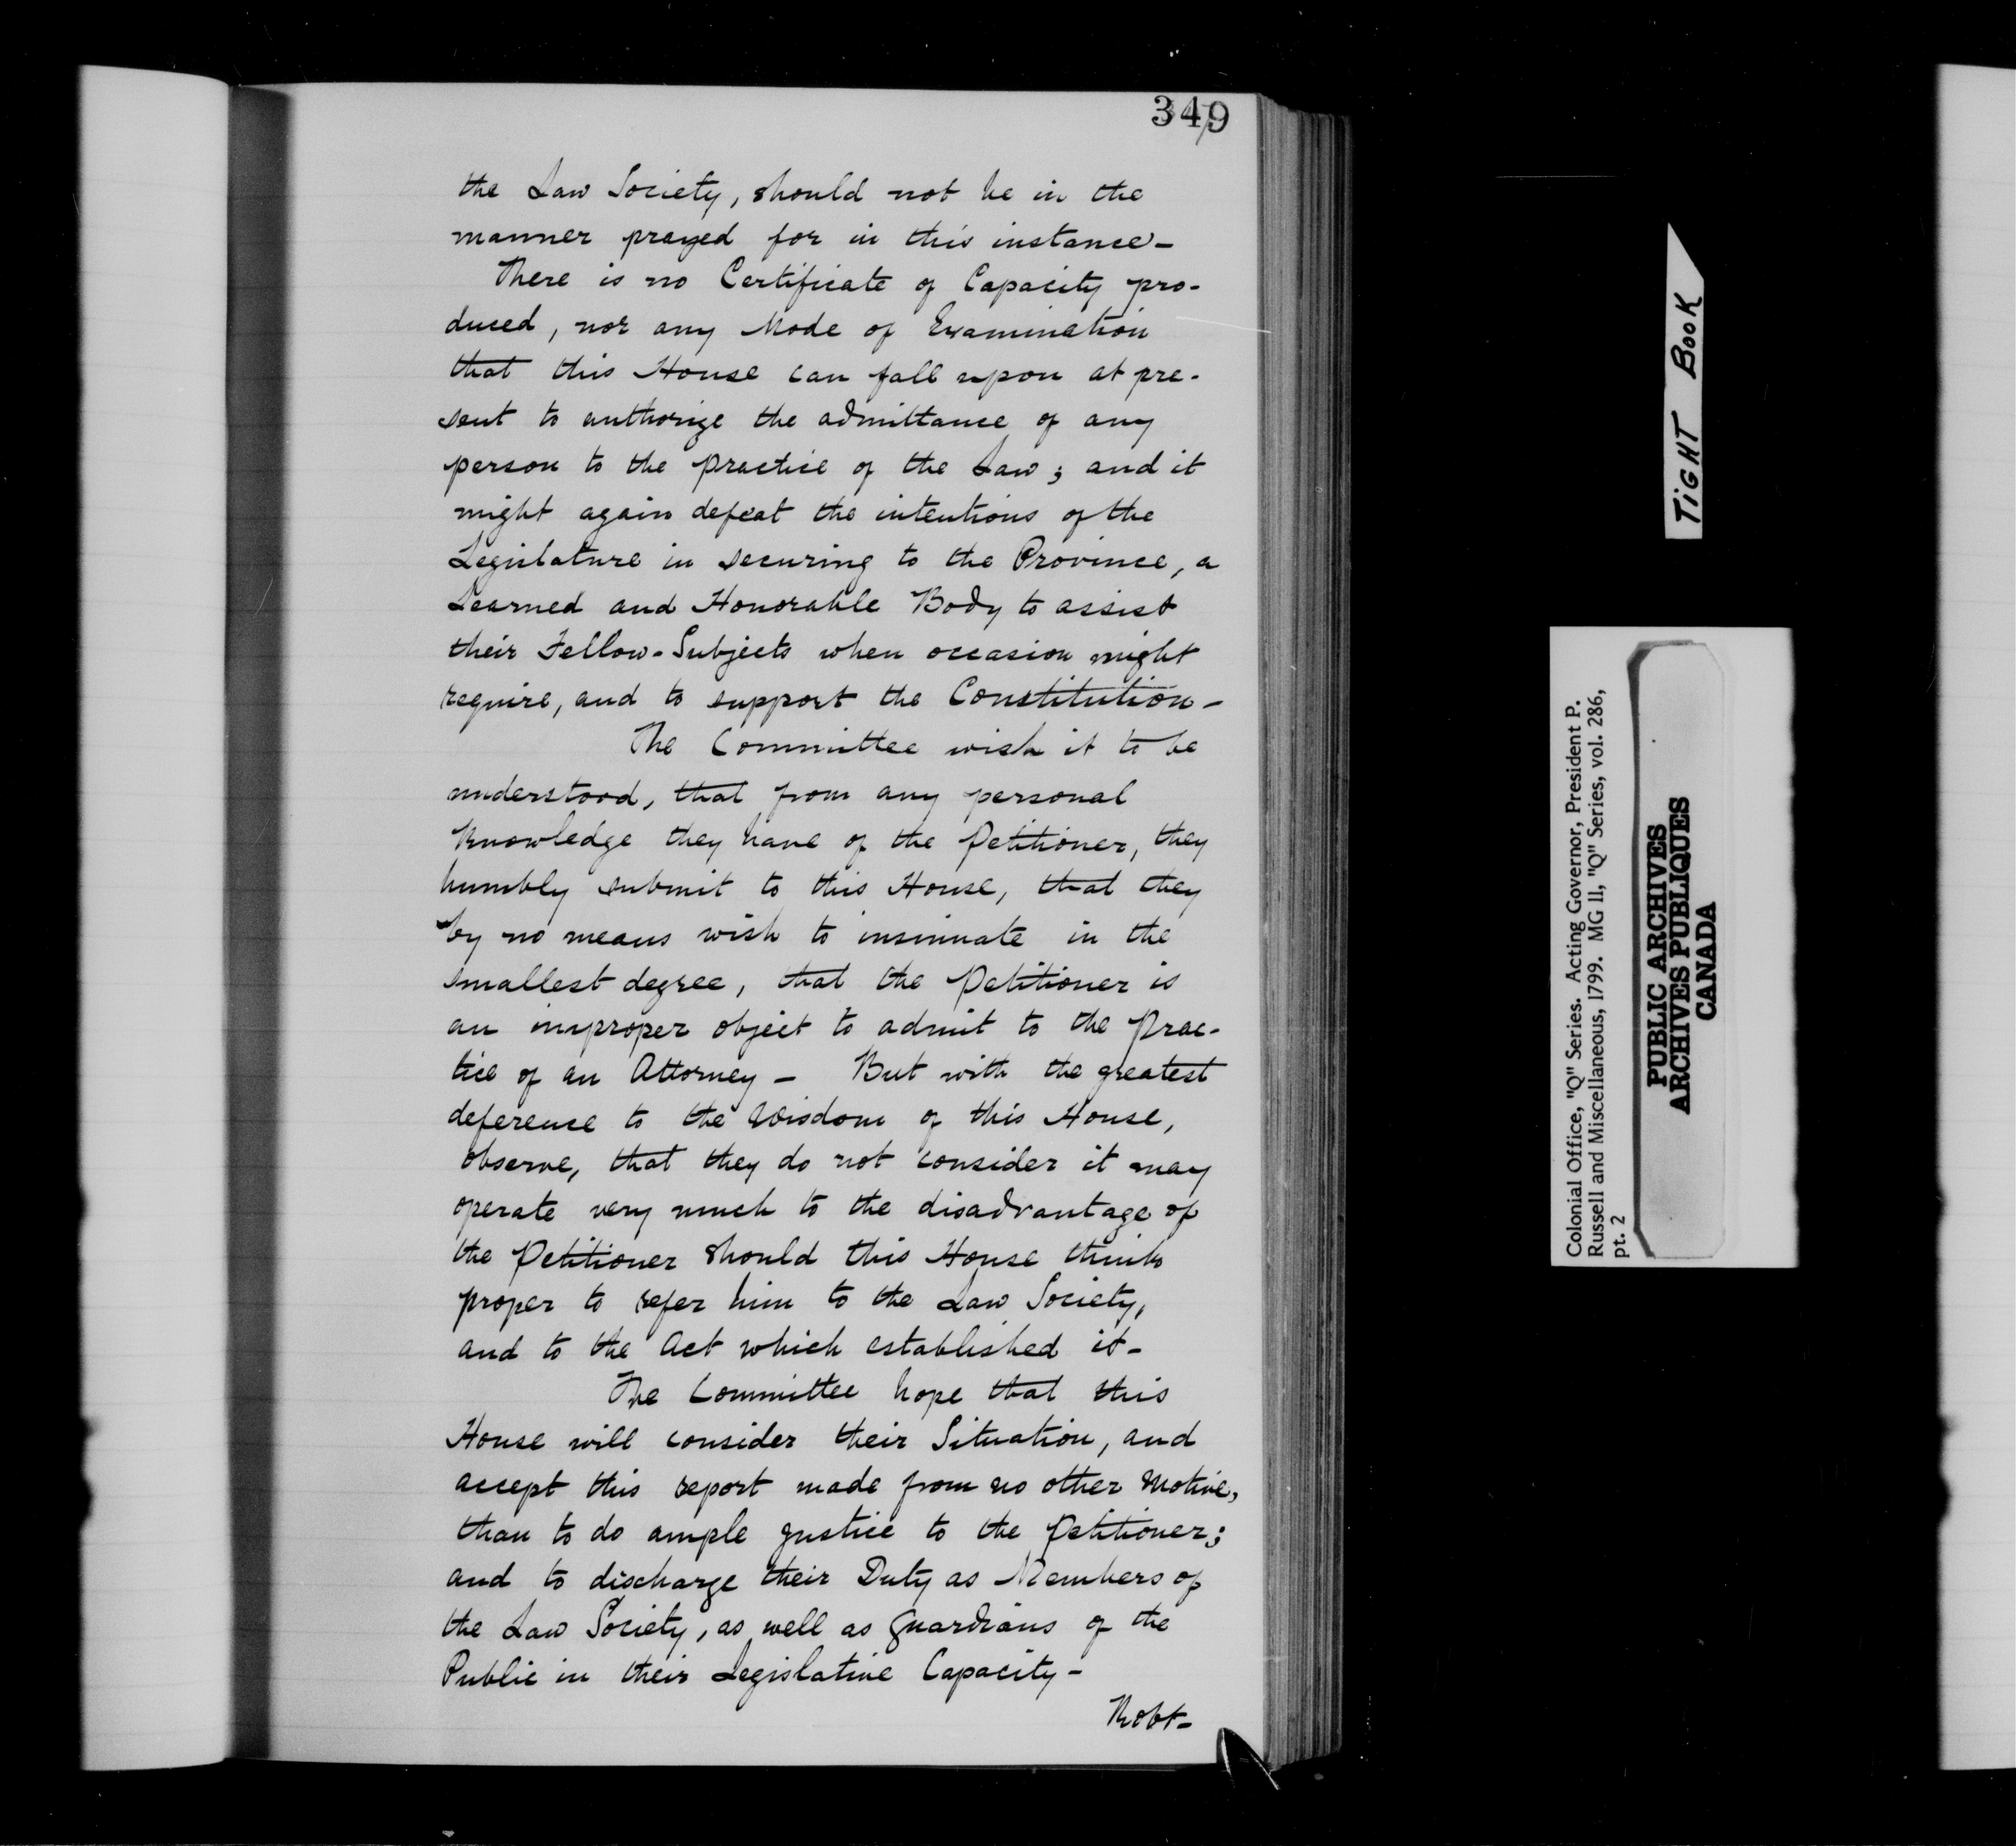 349
the Law Society, should not be in the
manner prayed for in this instance-
There is no Certificate of Capacity pro-
duced, nor any Mode of Examination
that this House can fall upon at pre-
sent to authorize the admittance of any
person to the practice of the Law; and it
might again defeat the intentions of the
Legislature in securing to the Province, a
Learned and Honorable Body to assist
their Fellow-Subjects when occasion might
require, and to support the Constitution-
The Committee wish it to be
understood, that from any personal
Knowledge they have of the Petitioner, they
humbly submit to this House, that they
by no means wish to insinuate in the
smallest degree, that the Petitioner is
an improper object to admit to the Prac-
tice of an Attorney - But with the greatest
deference to the Wisdom of this House,
observe, that they do not consider it may
operate very much to the disadvantage of
the Petitioner should this House think
proper to refer him to the Law Society,
and to the Act which established it-
The Committee hope that this
House will consider their Situation, and
accept this report made from no other Motive,
than to do ample Justice to the Petitioner;
and to discharge their Duty as Members of
the Law Society, as well as Guardians of the
Public in their Legislative Capacity-
Robt-
TIGHT BOOK
Colonial Office, "Q" Series. Acting Governor, President P.
Russell and Miscellaneous, 1799. MG 11, "Q" Series, vol. 286,
pt. 2
PUBLIC ARCHIVES
ARCHIVES PUBLIQUES
CANADA